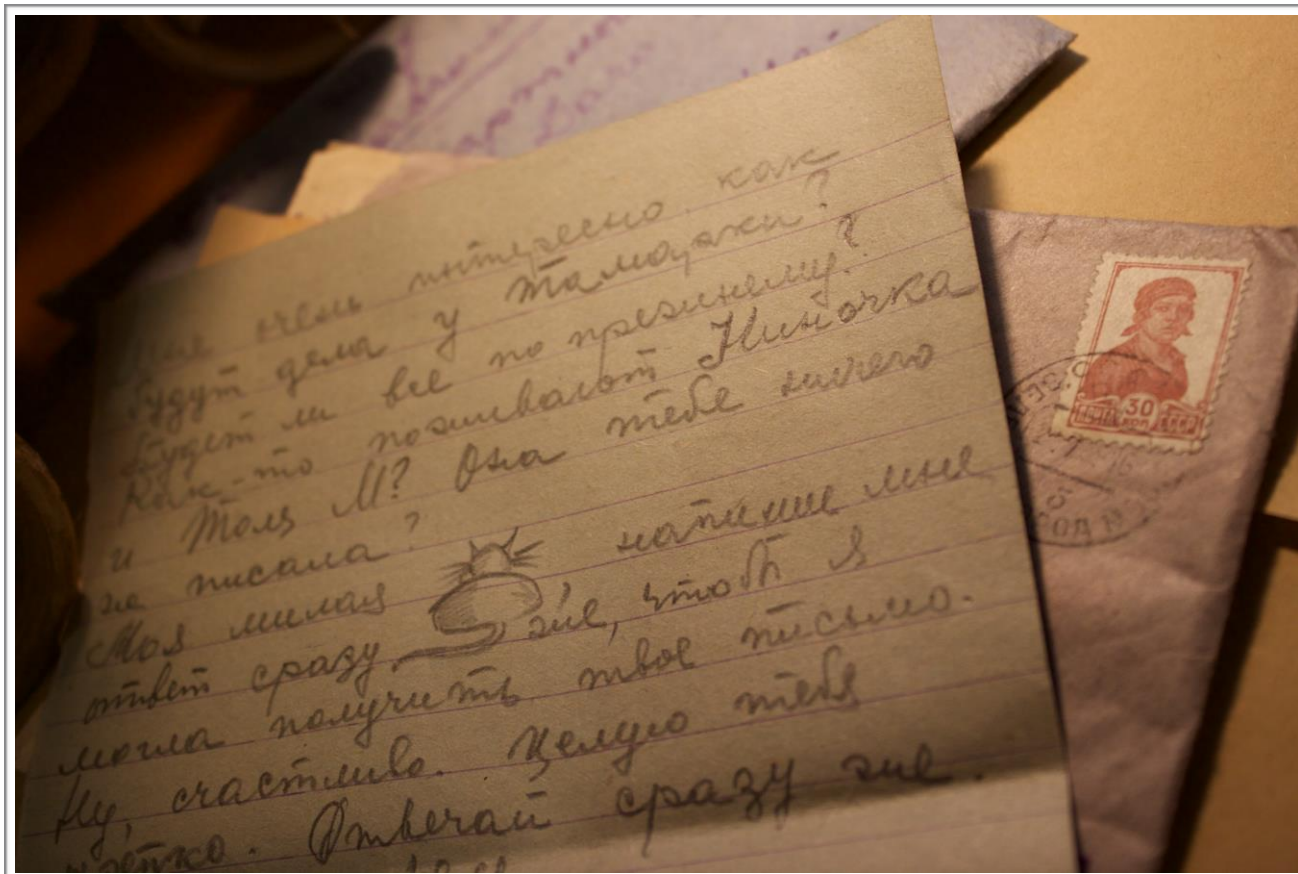 Мне очень интересно, как
будут дела у Тамарки?
Будет ли все по прежнему?
Как-то поживают Ниночка
и Толя М? Она тебе ничего
не писала?
Моя милая напиши мне
ответ сразу же, чтобы я
могла получить твое письмо.
Ну, счастливо. Целую тебя
крепко. Отвечай сразу же.
30
ПОЧТА КОП СССР